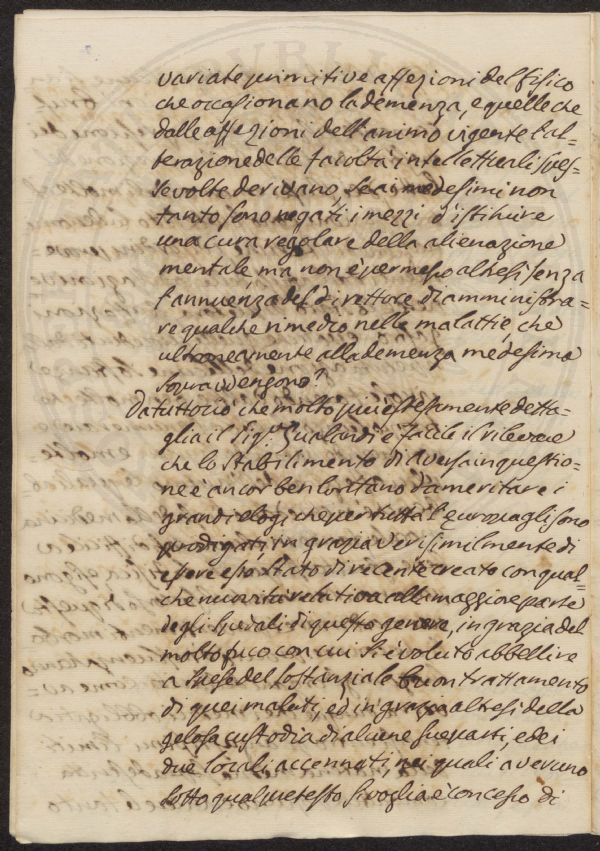 variate primitive affezioni del fisico
che occasionano la demenza, e quelle che
dalle affezioni dell'animo urgente l'al-
terazione delle facoltà intellettuali spes-
se volte derivano, se ai medesimi non
tanto sono negati i mezzi d'istituire
una cura regolare della alienazione
mentale, ma non è permesso altresì senza
l'annuenza del direttore di amministra-
re qualche rimedio nelle malattie, che
ultroneamente alla demenza medesima
sopravvengono?
Da tutto ciò che molto più estesamente detta-
glia il Sig.r Gualandi è facile il rilevare
che lo stabilimento di Aversa in questio-
ne è ancor ben lontano da meritare i
grandi elogi, che per tutta l'Europa gli sono
prodigati in grazia verisimilmente di
essere esso stato di recente creato con qual-
che novità relativa alla maggiore parte
degli Spedali di questo genere, in grazia del
molto fuco con cui si è voluto abbellire
a spese del sostanziale buon trattamento
di quei malati, ed in grazia altresì della
gelosa custodia di alcune sue parti, e dei
due locali accennati, nei quali a veruno
sotto qualque testo si voglia è concesso di